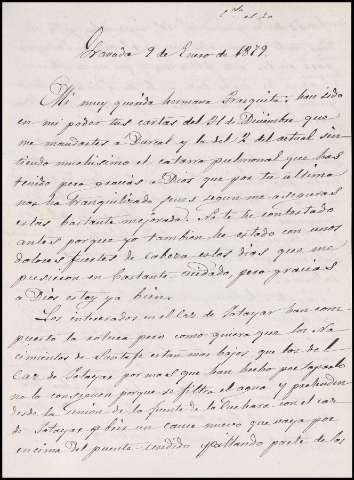 Granada 9 de Enero de 1879.
Mi muy querida hermana Frasquita: han sido
en mi poder tus cartas del 21 de Diciembre que
me mandastes a Darcal y la del 2 del actual sin-
tiendo muchisimo el catarro pulmonal que has
tenido pero gracias a Dios que por tu ultima
nos ha tranquilizado pues segun me aseguras
estas bastante mejorada. No te he contestado
antes porque yo tambien he estado con unos
dolores fuertes de cabeza estos dias que me
pusieron en bastante cuidado, pero gracias
a Dios estoy ya bien.
Los enterradores en el Caz de Jotayar han com-
puesto la pero como quiera que los Na-
cimientos de Santafe estan mas bajos que los del
Caz de Jotayar por mas que han hecho por taparlo
no lo consiguen porque se filtra el agua y pretenden
desde la union de la fuente de la Cuchara con el caz
de Jotayar abrir un cauce nuevo que vaya por
encima del puente hundido quitando parte de las